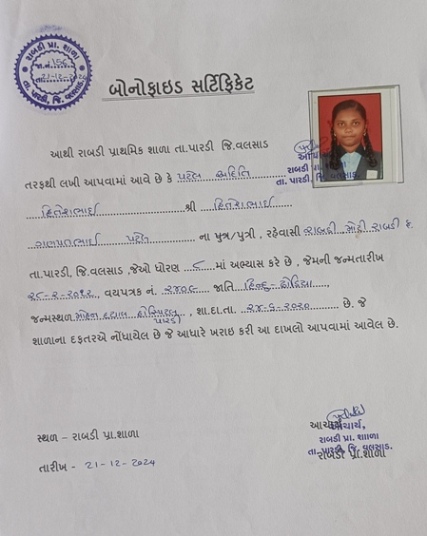 રાબડી પ્રા. શાળા
જા.નં. 156
તા. 21-12-2024
તા. પારડી, જિ. વલસાડ.
બોનોફાઇડ સર્ટિફિકેટ
આથી રાબડી પ્રાથમિક શાળા તા.પારડી જિ.વલસાડ
તરફથી લખી આપવામાં આવે છે કે પટેલ અદિતિ
હિતેશભાઈ શ્રી હિતેશભાઈ
ગણપતભાઈ પટેલ ના પુત્ર/પુત્રી, રહેવાસી રાબડી મોટી રાબડી ફ.
તા.પારડી, જિ.વલસાડ ,જેઓ ધોરણ ૮ માં અભ્યાસ કરે છે , જેમની જન્મતારીખ
વયપત્રક નં. ૨૪૦૮ જાતિ હિન્દુ - ધોડિયા ,
જન્મસ્થળ હોસ્પિટલ પારડી , શા.દા.તા. ૨૪-૬-૨૦૨૦ છે. જે
શાળાના દફતરએ નોંધાયેલ છે જે આધારે ખરાઇ કરી આ દાખલો આપવામાં આવેલ છે.
આચાર્ય,
સ્થળ – રાબડી પ્રા.શાળા
રાબડી પ્રા. શાળા
તા. પારડી, જિ. વલસાડ.
રાબડી પ્રા.શાળા
તારીખ - 21-12-2024